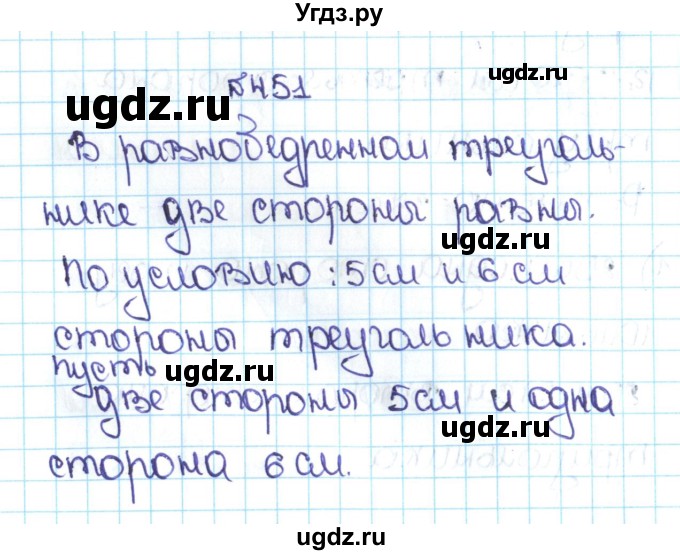 Угдз.ру
№451
ugdz.ru
ugdz.ru
В равнобедренном треуголь-
нике две стороны равны.
ugdz.ru
По условию: 5 см и 6 см
стороны треугольника.
пусть
ugdz.ru
две стороны 5 см и одна
ugdz.ru
сторона 6 см.
ugdz.ru